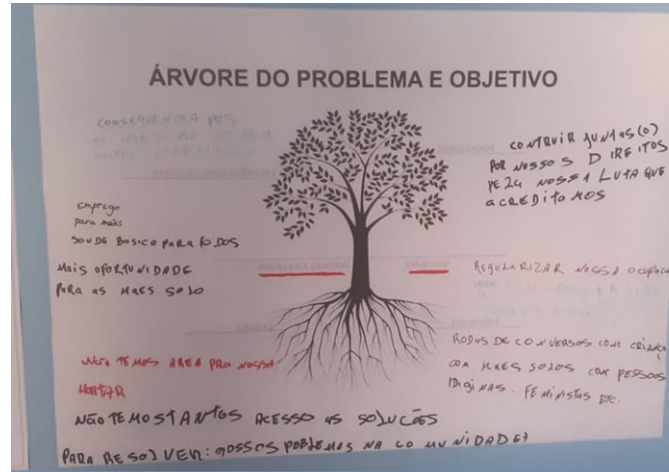 ÁRVORE DO PROBLEMA E OBJETIVO
CONSEQUENCIA
RESULTADOS
CONTRUIR JUNTAS(O)
POR NOSSOS DIREITOS
NOSSA LUTA QUE
ACREDITAMOS
emprego
para mães
SAUDE BASICA PARA TODOS
MAIS OPORTUNIDADE
PARA AS MAES SOLO
PROBLEMA CENTRAL
OBJETIVO
REGULARIZAR NOSSA
CAUSAS
RODAS DE CONVERSAS COM
COM MAES SOLOS COM PESSOAS
IDIGINAS. FEMINISTAS ETC.
NÃO TEMOS AREA PRA NOSSA
NÃO TEMOS TANTOS ACESSO AS SOLUCÕES
PARA RESOLVER: NOSSOS POBLEMAS NA COMUNIDADE